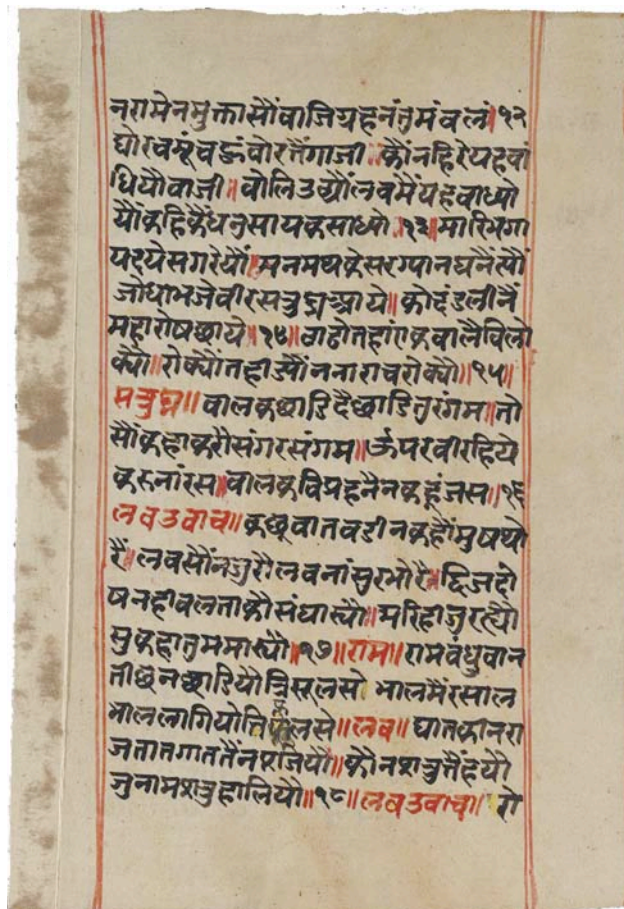 नरामेनमुक्तासौंवाजिग्रहनंतुमंवलं॥१२
घोरचमूंचहुंवोरतैंगाजी॥कौंनहिरेयहवां
धियौवाजी॥वोलिउठ्यौंलवमैंयहवाध्यो
यौंकहिकैंधनुसायकसाध्यो॥१३॥मारिभगा
यदयेसगरेयौं॥मनमथकेसरग्यानघनैंत्यौं
जोधाभजेवीरसत्रुघ्नआये॥कोदंडलीनैं
महारोषछाये॥१४॥ठाढोतहांएकवालैविलो
क्यौ॥रोक्यौंतहीजौंननाराचरोक्यौ॥१५॥
सत्रुघ्न॥वालकछाडिदैछाडितुरंगम॥तो
सौंकहाकरौसंगरसंगम॥ऊपरवीरहिये
करुनांरस॥वालकविप्रहनैनकहूंजस॥१६
लवउवाच॥कछूवातवडीनकहौंमुषथो
रैं॥लवसौंनजुरौलवनांसुरभोरै॥द्विजदो
षनहीवलताकौसंघास्यौ॥मरिहीजुरत्यौ
सुकहातुममास्यौ॥१७॥राम॥रामवंधुवान
तीछनछाडियौत्रिसूलसे भालमैंरसाल
भाललागियोतिफूलसे॥लव॥घातकीनरा
जतातगाततैंनपूजियौ॥कौनशत्रुतैंहयौ
जुनामशत्रुहालियौ॥१८॥लवउवाच॥रो